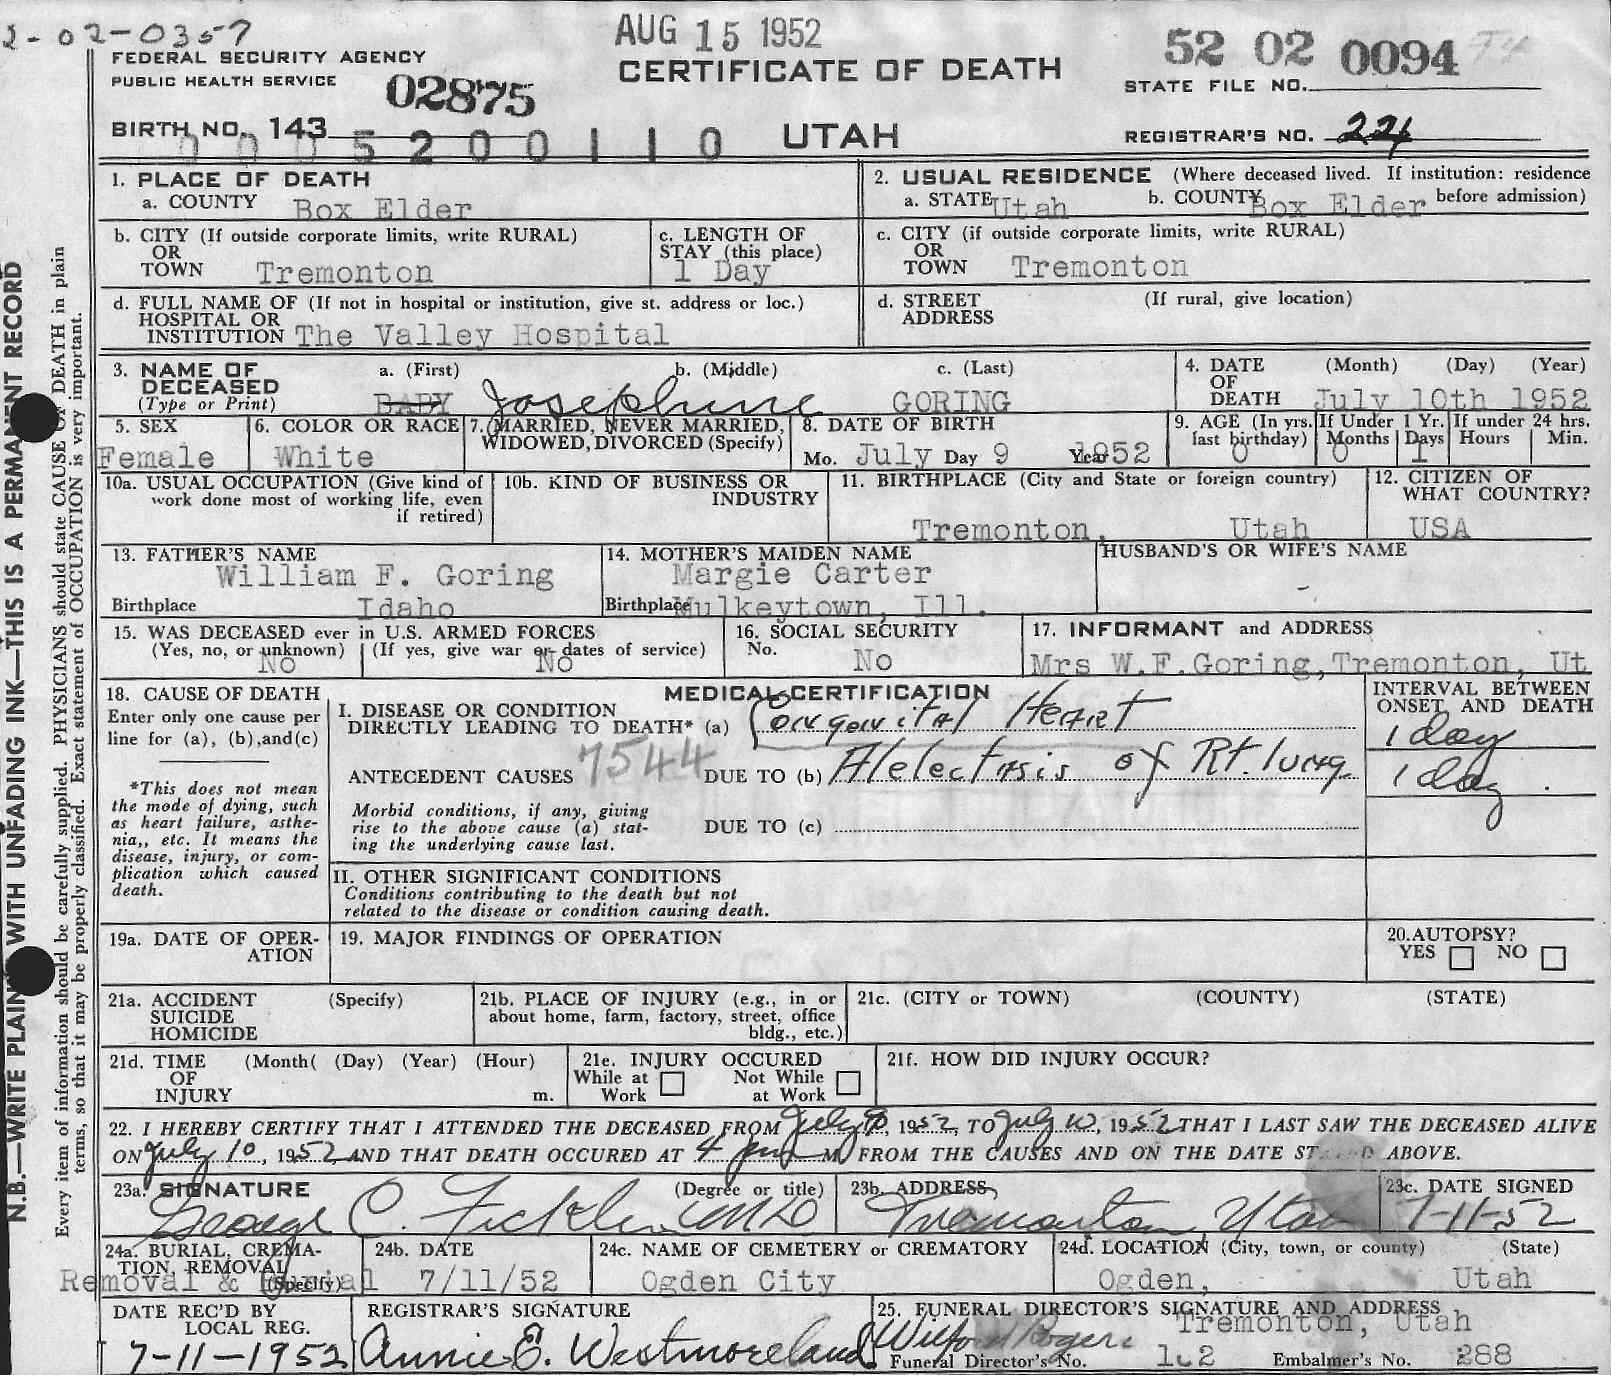 2-02-0357
AUG 15 1952
52 02 0094
FEDERAL SECURITY AGENCY
PUBLIC HEALTH SERVICE
02875
CERTIFICATE OF DEATH
STATE FILE NO.
BIRTH NO. 143
5200110
UTAH
REGISTRAR'S NO. 224
1. PLACE OF DEATH
a. COUNTY Box Elder
2. USUAL RESIDENCE (Where deceased lived. If institution: residence before admission)
a. STATE Utah b. COUNTY Box Elder
b. CITY (If outside corporate limits, write RURAL)
OR
TOWN Tremonton
c. LENGTH OF
STAY (this place)
1 Day
c. CITY (if outside corporate limits, write RURAL)
OR
TOWN Tremonton
d. FULL NAME OF (If not in hospital or institution, give st. address or loc.)
HOSPITAL OR
INSTITUTION The Valley Hospital
d. STREET (If rural, give location)
ADDRESS
3. NAME OF
DECEASED
(Type or Print)
a. (First) b. (Middle) c. (Last)
BABY Josephine GORING
4. DATE (Month) (Day) (Year)
OF
DEATH July 10th 1952
5. SEX
Female
6. COLOR OR RACE
White
7. (MARRIED, NEVER MARRIED,
WIDOWED, DIVORCED (Specify)
8. DATE OF BIRTH
Mo. July Day 9 Year 1952
9. AGE (In yrs. last birthday) 0
If Under 1 Yr. Months 0 Days 1
If under 24 hrs. Hours Min.
10a. USUAL OCCUPATION (Give kind of
work done most of working life, even
if retired)
10b. KIND OF BUSINESS OR
INDUSTRY
11. BIRTHPLACE (City and State or foreign country)
Tremonton, Utah
12. CITIZEN OF
WHAT COUNTRY?
USA
13. FATHER'S NAME
William F. Goring
Birthplace Idaho
14. MOTHER'S MAIDEN NAME
Margie Carter
Birthplace Mulkeytown, Ill.
HUSBAND'S OR WIFE'S NAME
-
15. WAS DECEASED ever in U.S. ARMED FORCES
(Yes, no, or unknown) (If yes, give war or dates of service)
No No
16. SOCIAL SECURITY
No.
No
17. INFORMANT and ADDRESS
Mrs W.F.Goring, Tremonton, Ut
18. CAUSE OF DEATH
Enter only one cause per
line for (a), (b), and (c)
*This does not mean
the mode of dying, such
as heart failure, asthe-
nia,, etc. It means the
disease, injury, or com-
plication which caused
death.
MEDICAL CERTIFICATION
I. DISEASE OR CONDITION
DIRECTLY LEADING TO DEATH* (a) Congenital Heart
7544
ANTECEDENT CAUSES DUE TO (b) Atelectasis of Rt. lung
Morbid conditions, if any, giving
rise to the above cause (a) stat-
ing the underlying cause last.
DUE TO (c)
INTERVAL BETWEEN
ONSET AND DEATH
1 day
1 day.
II. OTHER SIGNIFICANT CONDITIONS
Conditions contributing to the death but not
related to the disease or condition causing death.
19a. DATE OF OPER-
ATION
19. MAJOR FINDINGS OF OPERATION
20. AUTOPSY?
YES NO
21a. ACCIDENT (Specify)
SUICIDE
HOMICIDE
21b. PLACE OF INJURY (e.g., in or
about home, farm, factory, street, office
bldg., etc.)
21c. (CITY or TOWN) (COUNTY) (STATE)
21d. TIME (Month( (Day) (Year) (Hour)
OF
INJURY m.
21e. INJURY OCCURED
While at Work Not While at Work
21f. HOW DID INJURY OCCUR?
22. I HEREBY CERTIFY THAT I ATTENDED THE DECEASED FROM July, 1952, TO July 10, 1952 THAT I LAST SAW THE DECEASED ALIVE
ON July 10, 1952, AND THAT DEATH OCCURED AT 4 pm M FROM THE CAUSES AND ON THE DATE ABOVE.
23a. SIGNATURE (Degree or title)
George C. Ficklin MD
23b. ADDRESS
Tremonton Utah
23c. DATE SIGNED
7-11-52
24a. BURIAL, CREMA-
TION, REMOVAL
(Specify)
Removal & Burial
24b. DATE
7/11/52
24c. NAME OF CEMETERY or CREMATORY
Ogden City
24d. LOCATION (City, town, or county) (State)
Ogden, Utah
DATE REC'D BY
LOCAL REG.
7-11-1952
REGISTRAR'S SIGNATURE
Annie E. Westmoreland
25. FUNERAL DIRECTOR'S SIGNATURE AND ADDRESS
Tremonton, Utah
Rogers
Funeral Director's No. 162 Embalmer's No. 288
N.B.—WRITE PLAINLY WITH UNFADING INK—THIS IS A PERMANENT RECORD
Every item of information should be carefully supplied. PHYSICIANS should state CAUSE OF DEATH in plain
terms, so that it may be properly classified. Exact statement of OCCUPATION is very important.